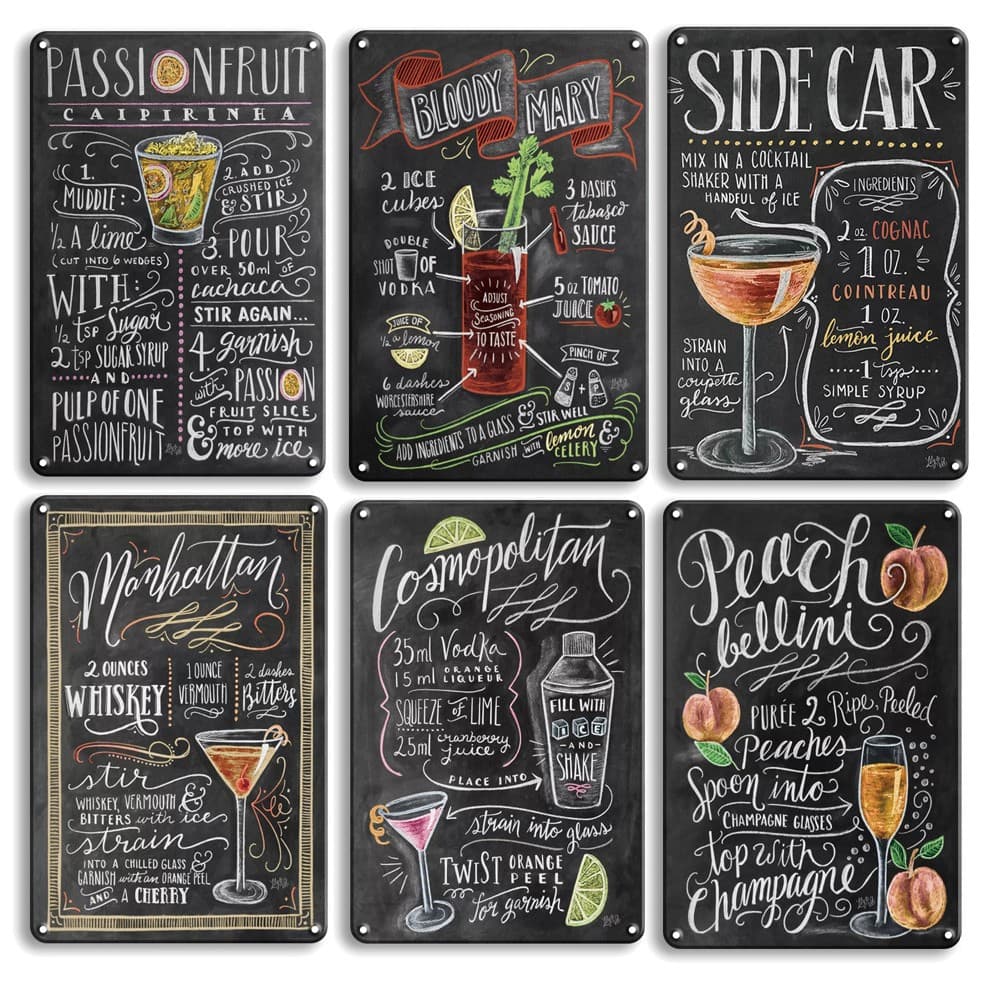 PASSIONFRUIT
CAIPIRINHA
1.
MUDDLE:
½ A lime
(CUT INTO 6 WEDGES)
WITH:
½ tsp Sugar
2 tsp SUGAR SYRUP
AND
PULP OF ONE
PASSIONFRUIT
2. ADD
CRUSHED ICE
& STIR
3. POUR
OVER 50ml OF
cachaca
STIR AGAIN...
4 garnish
with PASSION
FRUIT SLICE
& TOP WITH
more ice
BLOODY MARY
2 ICE
cubes
DOUBLE
SHOT OF
VODKA
JUICE OF
½ a lemon
6 dashes
WORCESTERSHIRE
sauce
3 DASHES
tabasco
SAUCE
5 oz TOMATO
JUICE
PINCH OF
S + P
ADJUST
SEASONING
TO TASTE
ADD INGREDIENTS TO A GLASS & STIR WELL
GARNISH WITH lemon &
CELERY
SIDE CAR
MIX IN A COCKTAIL
SHAKER WITH A
HANDFUL of ICE
STRAIN
INTO A
coupette
glass
INGREDIENTS
2 oz. COGNAC
1 OZ.
COINTREAU
1 OZ.
lemon juice
1 tsp
SIMPLE SYRUP
Manhattan
2 OUNCES
WHISKEY
1 OUNCE
VERMOUTH
2 dashes
Bitters
stir
WHISKEY, VERMOUTH &
BITTERS with ice
strain
INTO A CHILLED GLASS &
GARNISH with an ORANGE PEEL
AND A CHERRY
Cosmopolitan
35ml Vodka
15ml ORANGE
LIQUEUR
SQUEEZE OF LIME
25ml cranberry
juice
PLACE INTO
FILL WITH
ICE
AND
SHAKE
strain into glass
TWIST ORANGE
PEEL
for garnish
Peach
bellini
PURÉE 2 Ripe, Peeled
Peaches
Spoon into
CHAMPAGNE GLASSES
top with
Champagne